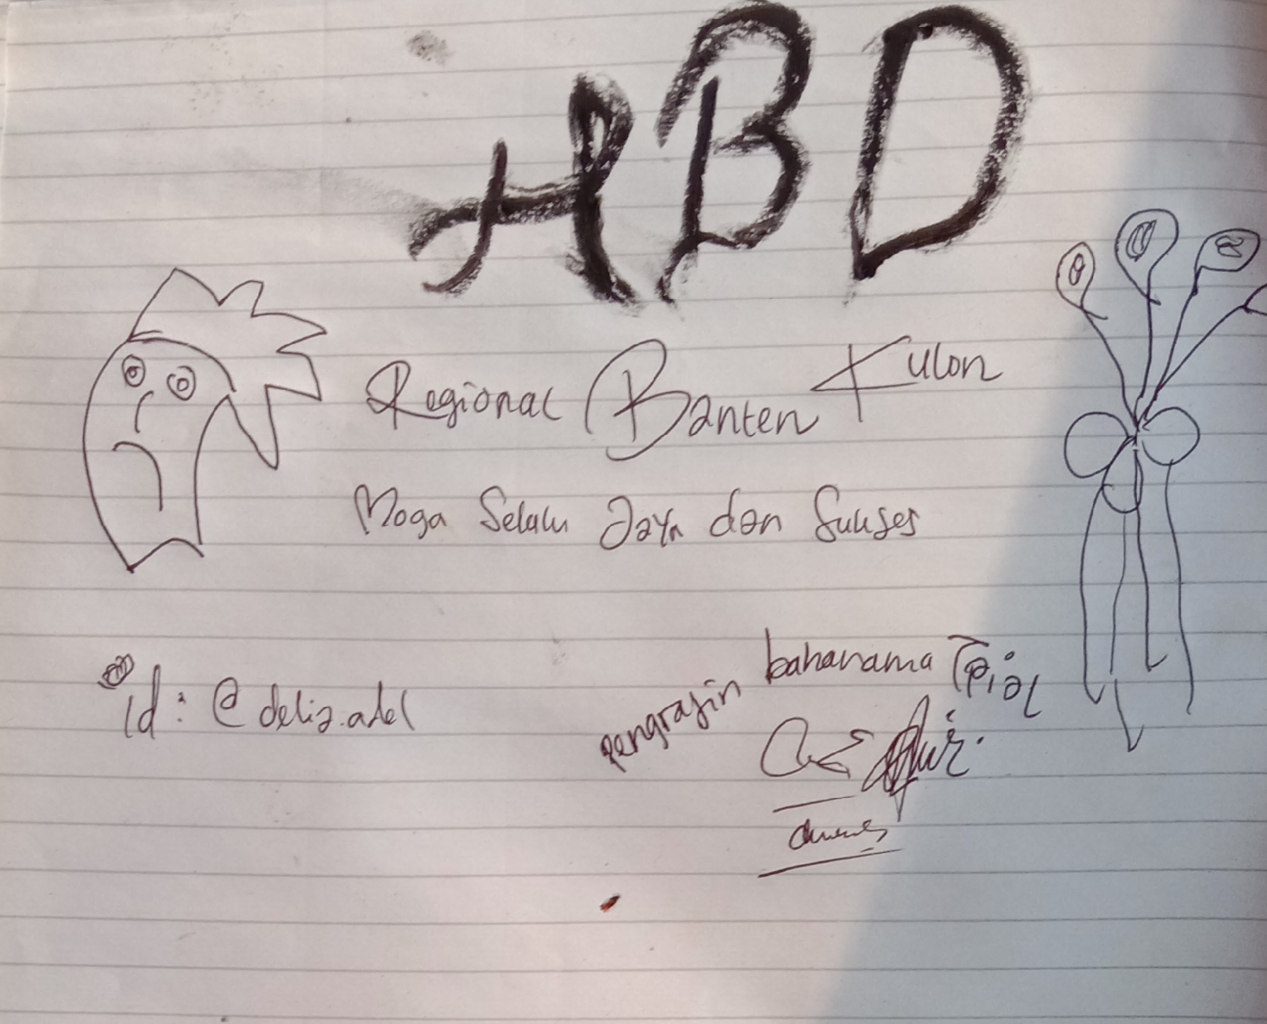 HBD
Regional Banten Kulon
Moga Selalu Jaya dan Sukses
id: @deliz.adel
pengrajin bahanama